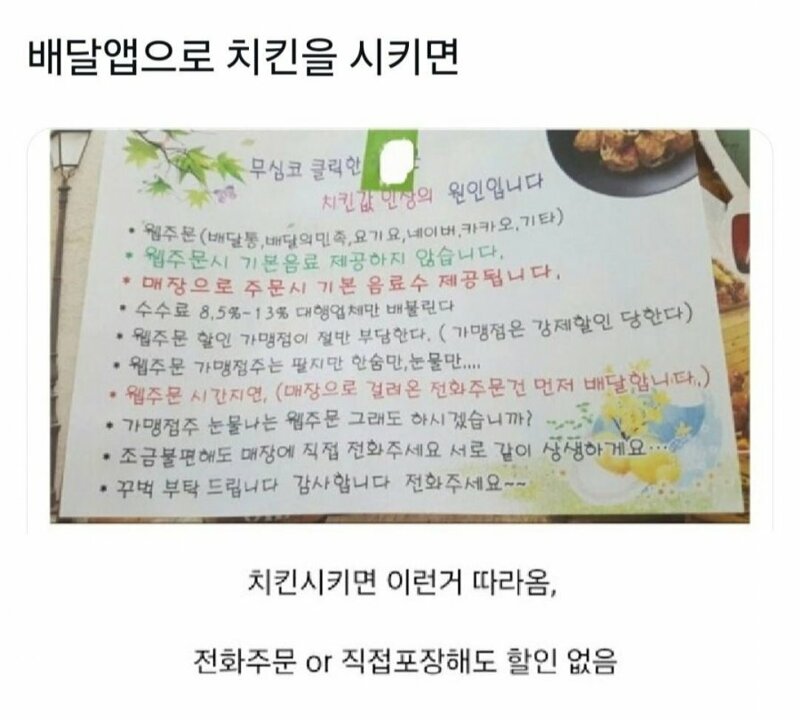 배달앱으로 치킨을 시키면
무심코 클릭한
치킨값 인상의 원인입니다
* 웹주문(배달통,배달의민족,요기요,네이버,카카오,기타)
* 웹주문시 기본음료 제공하지 않습니다.
* 매장으로 주문시 기본 음료수 제공됩니다.
* 수수료 8,5%-13% 대행업체만 배불린다
* 웹주문 할인 가맹점이 절반 부담한다. (가맹점은 강제할인 당한다)
* 웹주문 가맹점주는 팔지만 한숨만,눈물만....
* 웹주문 시간지연, (매장으로 걸려온 전화주문건 먼저 배달합니다.)
* 가맹점주 눈물나는 웹주문 그래도 하시겠습니까?
* 조금불편해도 매장에 직접 전화주세요 서로 같이 상생하게요...
* 꾸벅 부탁 드립니다 감사합니다 전화주세요~~
치킨시키면 이런거 따라옴,
전화주문 or 직접포장해도 할인 없음